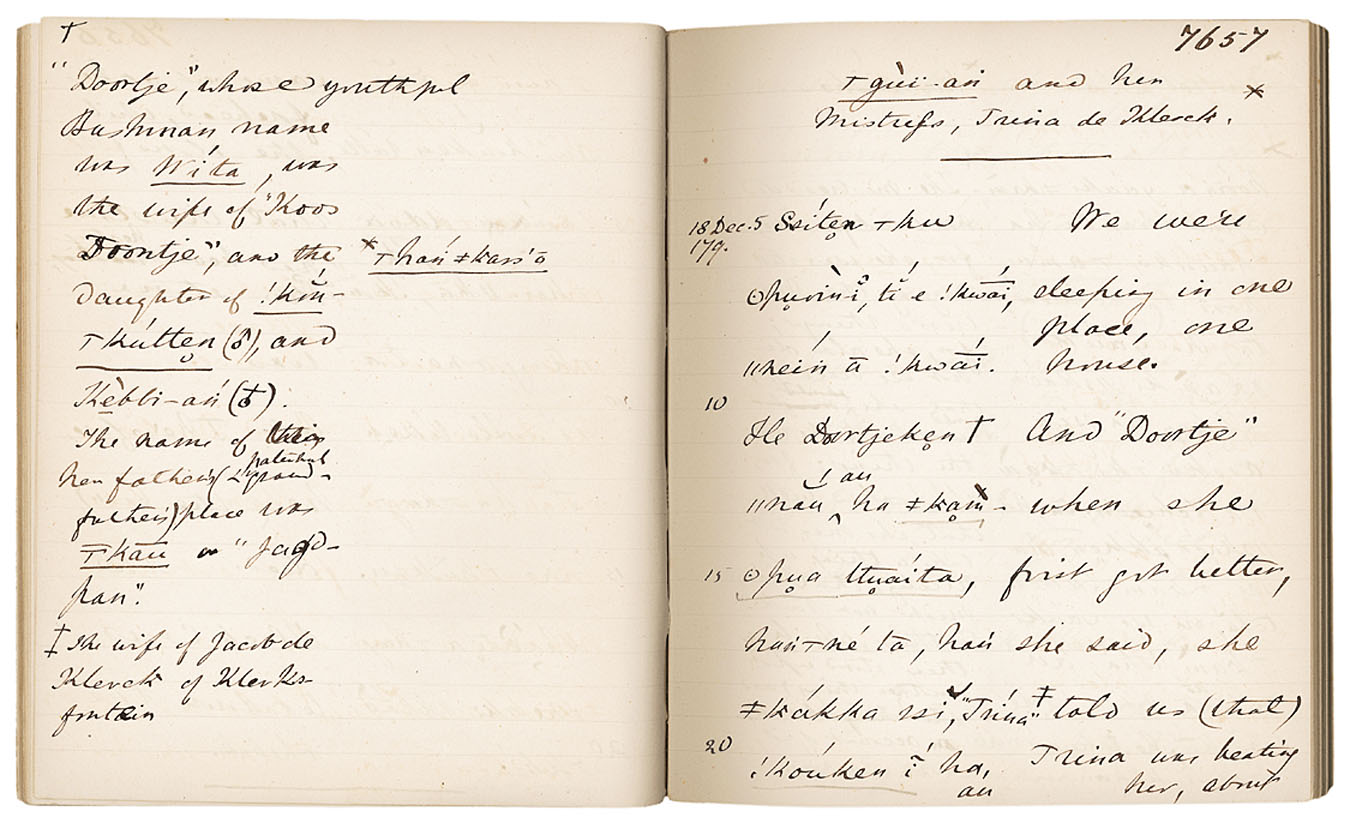 †
"Doortje", whose youthful
Bushman name
was Wíta, was
the wife of "Koos
Doortje", and the
daughter of !kõń-
⊤kútten̥ (♂), and
Kèbbi-aṅ (♁).
The name of
her father's (& paternal grand-
father's) place was
⊤kãũ or "Jagd-
pan".
‡ The wife of Jacob de
Klerck of Klerks-
fontein
× ⊤haṅ‡kass'ō
7657
⊤gùi-aṅ and her ×
Mistress, Trina de Klerck.
18 Dec. 5 Ssíten̥ ⊤ku We were
179.
ʘpu̥oinĭ, tí e !kwãí, sleeping in one
place, one
ǁneiṅ ā !kwãí. house.
10
He Doortjeken̥ † And "Doortje"
! au
ǁnău ha ‡kam̥- when she
15 ʘpu̥a ttu̥áita, first got better,
haṅ ⊤né ta, haṅ she said, she
‡kákka ssi, "Trína" ‡ told us (that)
20 !koúken ĩ ha, Trina was beating
au her, about